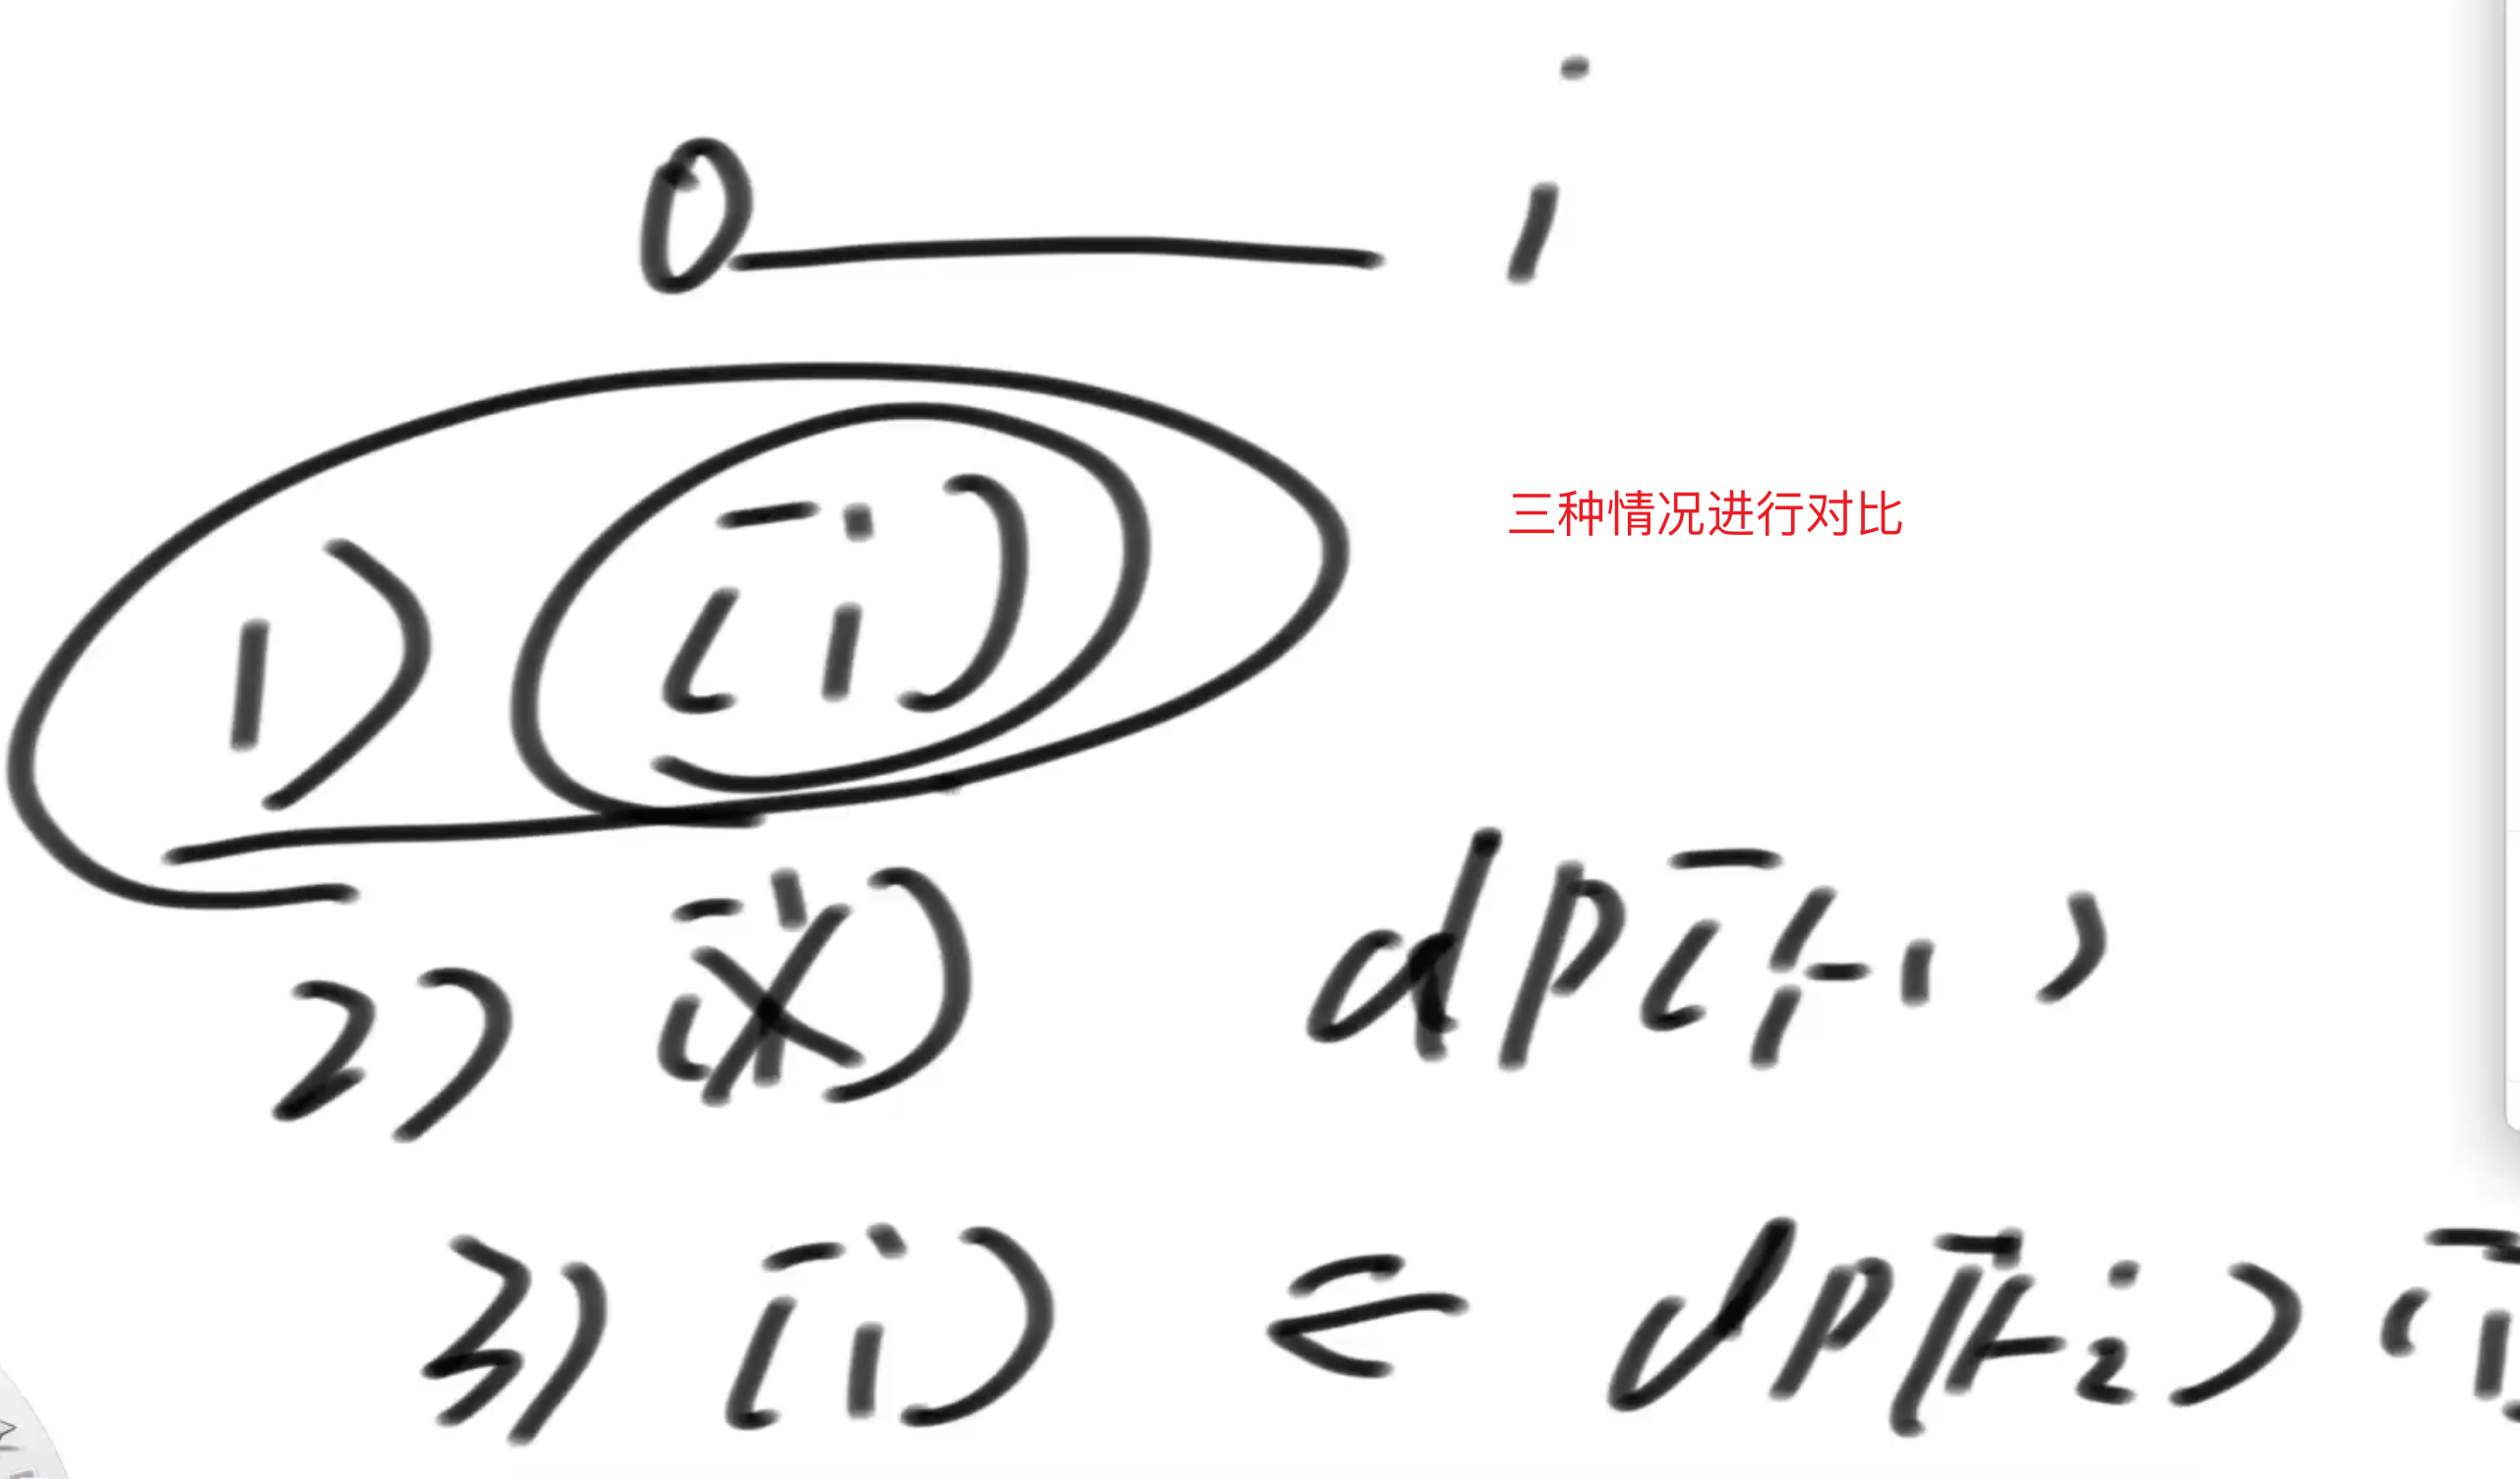 0 i
1) [i]
三种情况进行对比
2) [i] dp[i-1]
3) [i] ← dp[i-2] [i